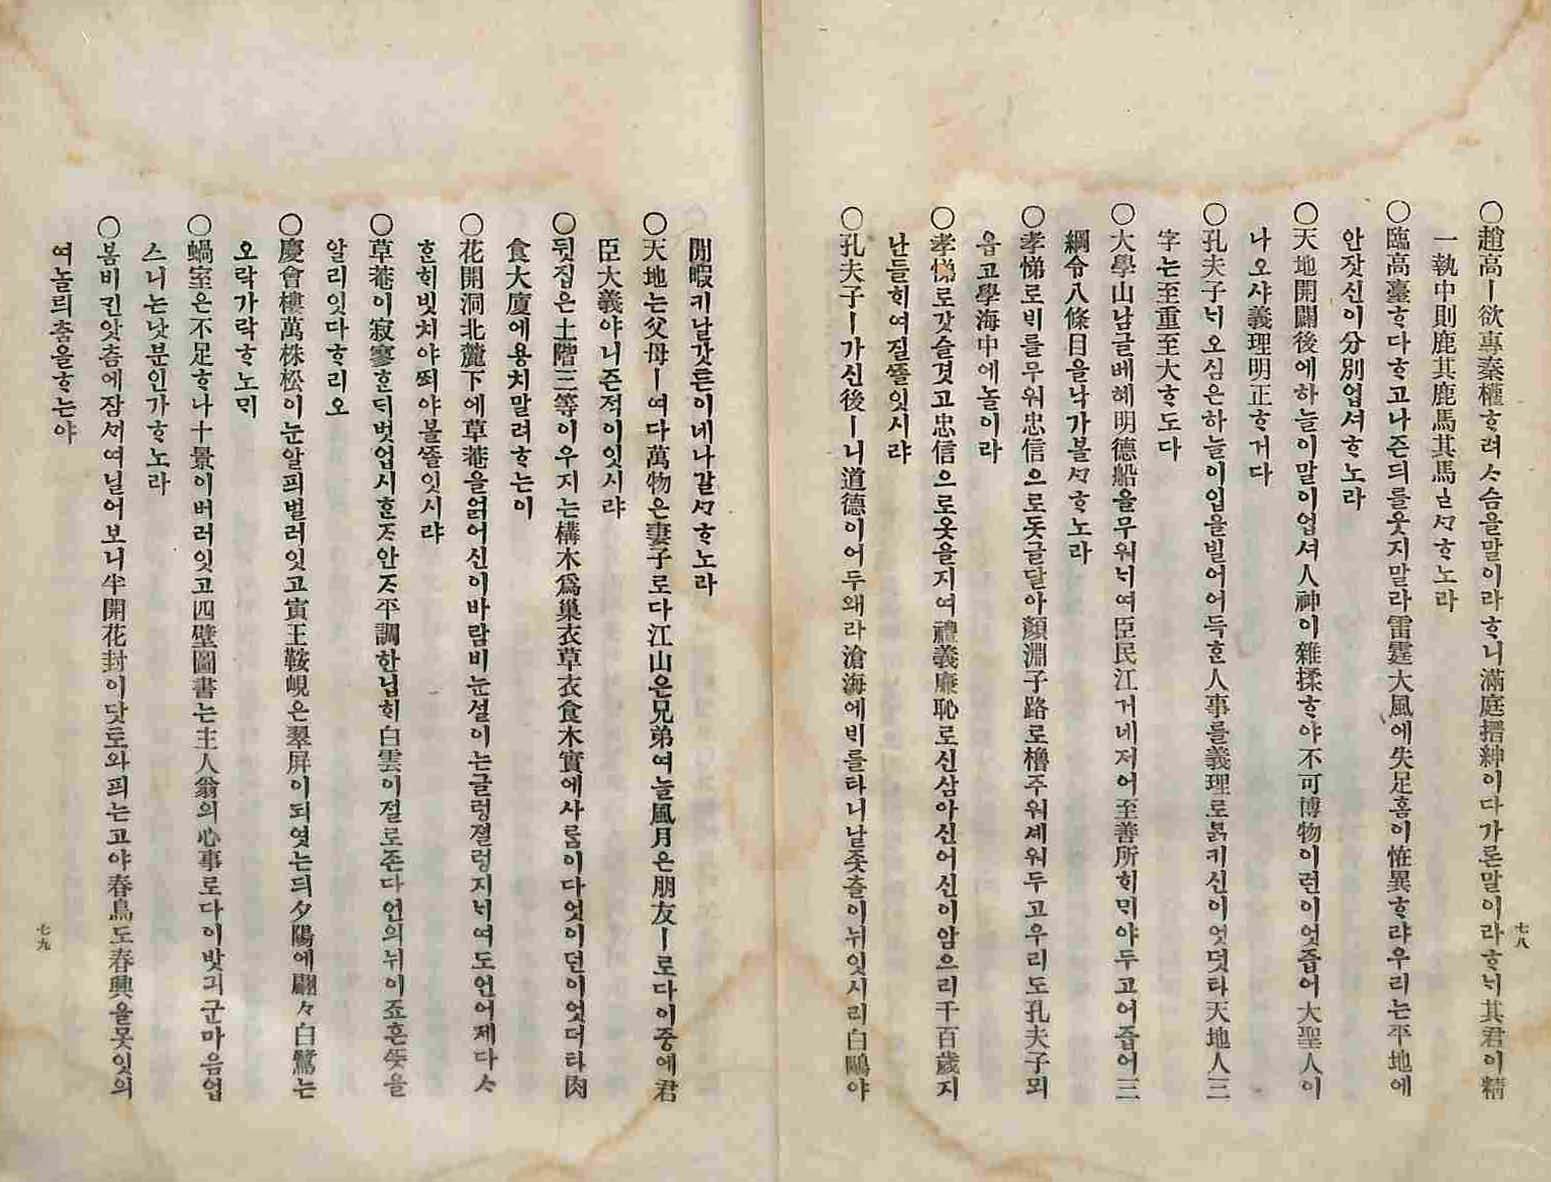 ○趙高ㅣ欲專秦權ᄒᆞ려ᄉᆞ슴을말이라ᄒᆞ니滿庭搢紳이다가론말이라ᄒᆞᄂᆡ其君이精
一執中則鹿其鹿馬其馬ᅟᅵᆫᄀᆞᄒᆞ노라
○臨高臺ᄒᆞ다ᄒᆞ고나즌듸를웃지말라雷霆大風에失足홈이恠異ᄒᆞ랴우리는平地에
안잣신이分別업셔ᄒᆞ노라
○天地開闢後에하늘이말이업셔人神이雜揉ᄒᆞ야不可博物이런이엇줍어大聖人이
나오샤義理明正ᄒᆞ거다
○孔夫子ᄂᆡ오심은하늘이입을빌어어득ᄒᆞᆫ人事를義理로붉키신이엇덧타天地人三
字는至重至大ᄒᆞ도다
○大學山남글베혀明德船을무워ᄂᆡ여臣民江거네저어至善所ᄒᆡᄆᆡ야두고어줍어三
綱令八條目을낙가볼ᄀᆞᄒᆞ노라
○孝悌로ᄇᆡ를무워忠信으로돗글달아顏淵子路로櫓주워셰워두고우리도孔夫子뫼
읍고學海中에놀이라
○孝悌로갓슬겻고忠信으로옷을지여禮義廉恥로신삼아신어신이암으리千百歲지
난들ᄒᆡ여질ᄯᅮᆯ잇시랴
○孔夫子ㅣ가신後ㅣ니道德이어두왜라滄海에ᄇᆡ를타니날좃츨이뉘잇시리白鷗야
閒暇키날갓튼이네나갈ᄀᆞᄒᆞ노라
七八
○天地는父母ㅣ여다萬物은妻子로다江山은兄弟여늘風月은朋友ㅣ로다이중에君
臣大義야니즌적이잇시랴
○뒷집은土階三等이우지는構木爲巢衣草衣食木實에사ᄅᆞᆷ이다엇이던이엇더타肉
食大廈에용치말려ᄒᆞ는이
○花開洞北麓下에草菴을얽어신이바람비눈셜이는글렁졀렁지ᄂᆡ여도언어제다ᄉᆞ
ᄒᆞᆫᄒᆡ빗치야ᄶᅬ야볼ᄯᅮᆯ잇시랴
○草菴이寂寥ᄒᆞᆫᄃᆡ벗업시혼ᄌᆞ안ᄌᆞ平調한닙ᄒᆡ白雲이절로존다언의뉘이죠흔ᄯᅳᆺ을
알리잇다ᄒᆞ리오
○慶會樓萬株松이눈알픠벌러잇고寅王鞍峴은翠屛이되엿는듸夕陽에翩々白鷺는
오락가락ᄒᆞ노ᄆᆡ
○蝸室은不足ᄒᆞ나十景이버러잇고四壁圖書는主人翁의心事로다이밧긔군마음업
스니는낫분인가ᄒᆞ노라
○봄비긴앗츰에잠ᄭᆡ여닐어보니半開花封이닷토와픠는고야春鳥도春興을못잇의
여놀릐춤을ᄒᆞ는야
七九